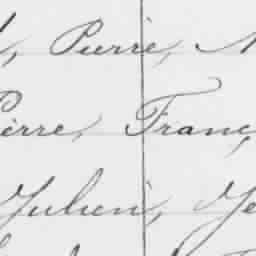 , Pierre,
Pierre, Franç
Julien, Je